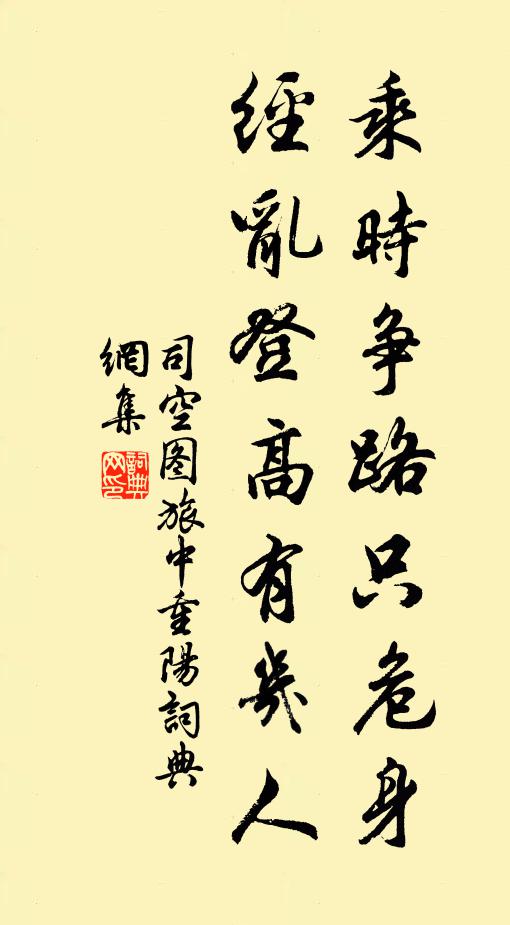 乘時争路只危身
經亂登高有幾人
司空图旅中重陽詞典
網集
詞典網印